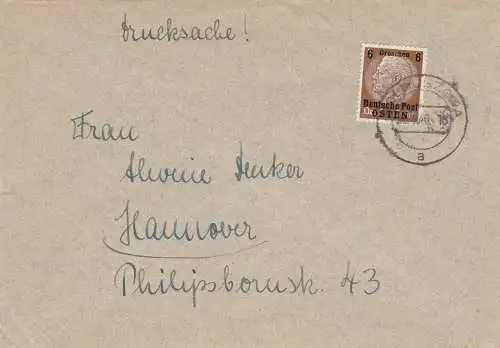 Drucksache!
6 Groschen 6
Deutsche Post
OSTEN
a
Frau
Alwine Denker
Hannover
Philipsbornstr. 43